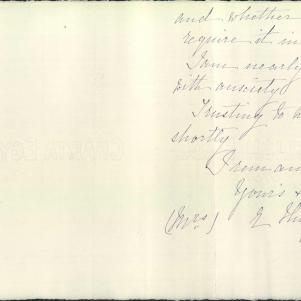 and whether
require it in
I am nearly
with anxiety
Trusting to h
shortly
I remain
Yours
(Mrs) E